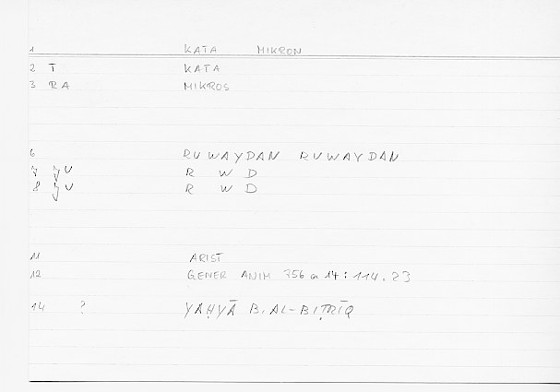 1 KATA MIKRON
2 T KATA
3 RA MIKROS
6 RUWAYDAN RUWAYDAN
7 yu R W D
8 yu R W D
11 ARIST
12 GENER ANIM 756 a 14 : 114.23
14 ? YAḤYĀ B. AL-BIṬRĪQ